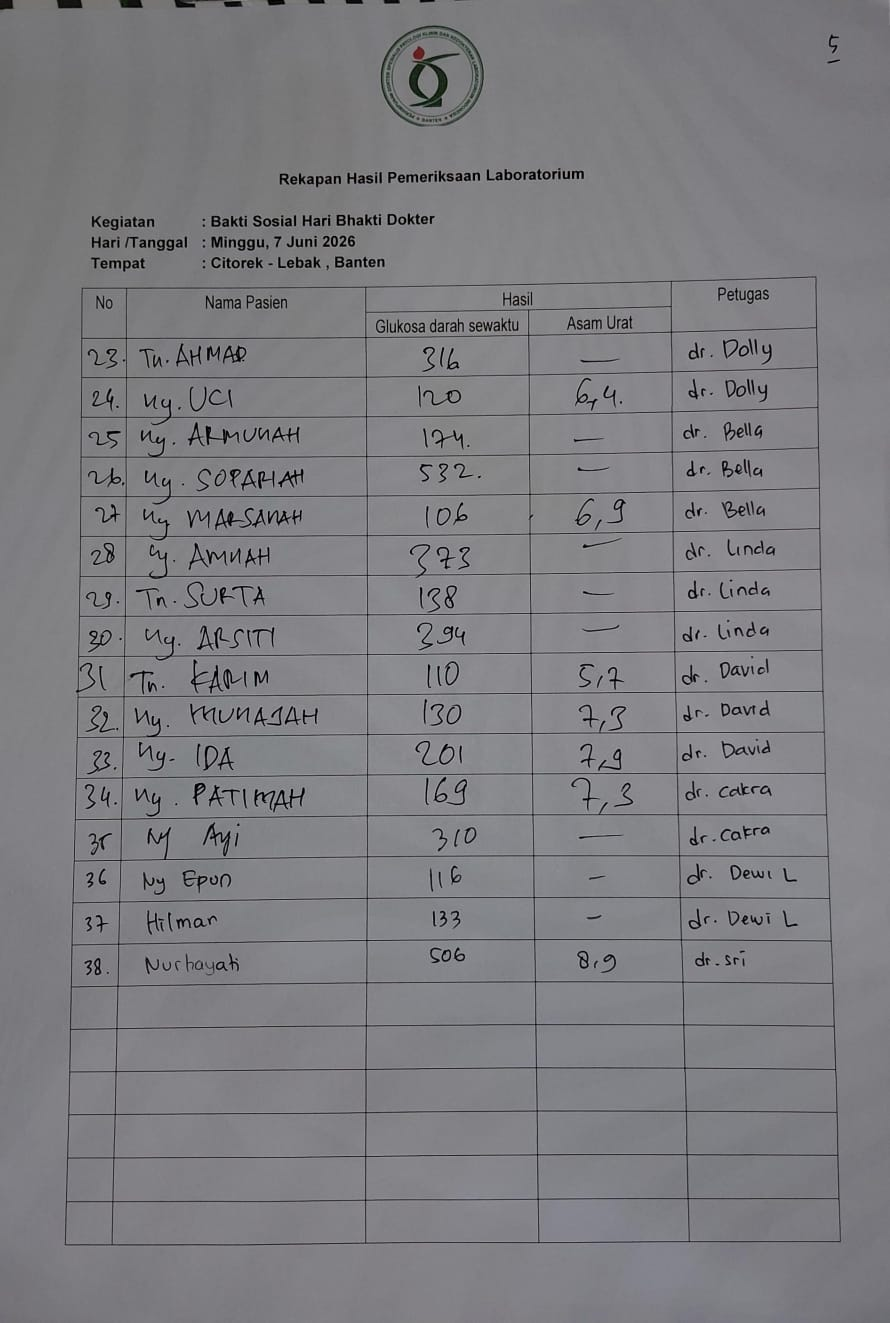 5
PERHIMPUNAN DOKTER SPESIALIS PATOLOGI KLINIK DAN KEDOKTERAN LABORATORIUM INDONESIA
BANTEN
Rekapan Hasil Pemeriksaan Laboratorium
Kegiatan : Bakti Sosial Hari Bhakti Dokter
Hari /Tanggal : Minggu, 7 Juni 2026
Tempat : Citorek - Lebak , Banten
No Nama Pasien Hasil Petugas
Glukosa darah sewaktu Asam Urat
23. Tn. AHMAD 316 — dr. Dolly
24. Ny. UCI 120 6,4. dr. Dolly
25 Ny. ARMUNAH 174. — dr. Bella
26. Ny. SOPARIAH 532. — dr. Bella
27 Ny MARSANAH 106 6,9 dr. Bella
28 Ny. AMNAH 373 — dr. Linda
29. Tn. SURTA 138 — dr. Linda
30. Ny. ARSITI 394 — dr. Linda
31 Tn. KARIM 110 5,7 dr. David
32. Ny. MUNAJAH 130 7,3 dr. David
33. Ny- IDA 201 7,9 dr. David
34. Ny. PATIMAH 169 7,3 dr. Cakra
35 Ny Ayi 310 — dr. Cakra
36 Ny Epon 116 — dr. Dewi L
37 Hilman 133 — dr. Dewi L
38. Nurhayati 506 8,9 dr. Sri